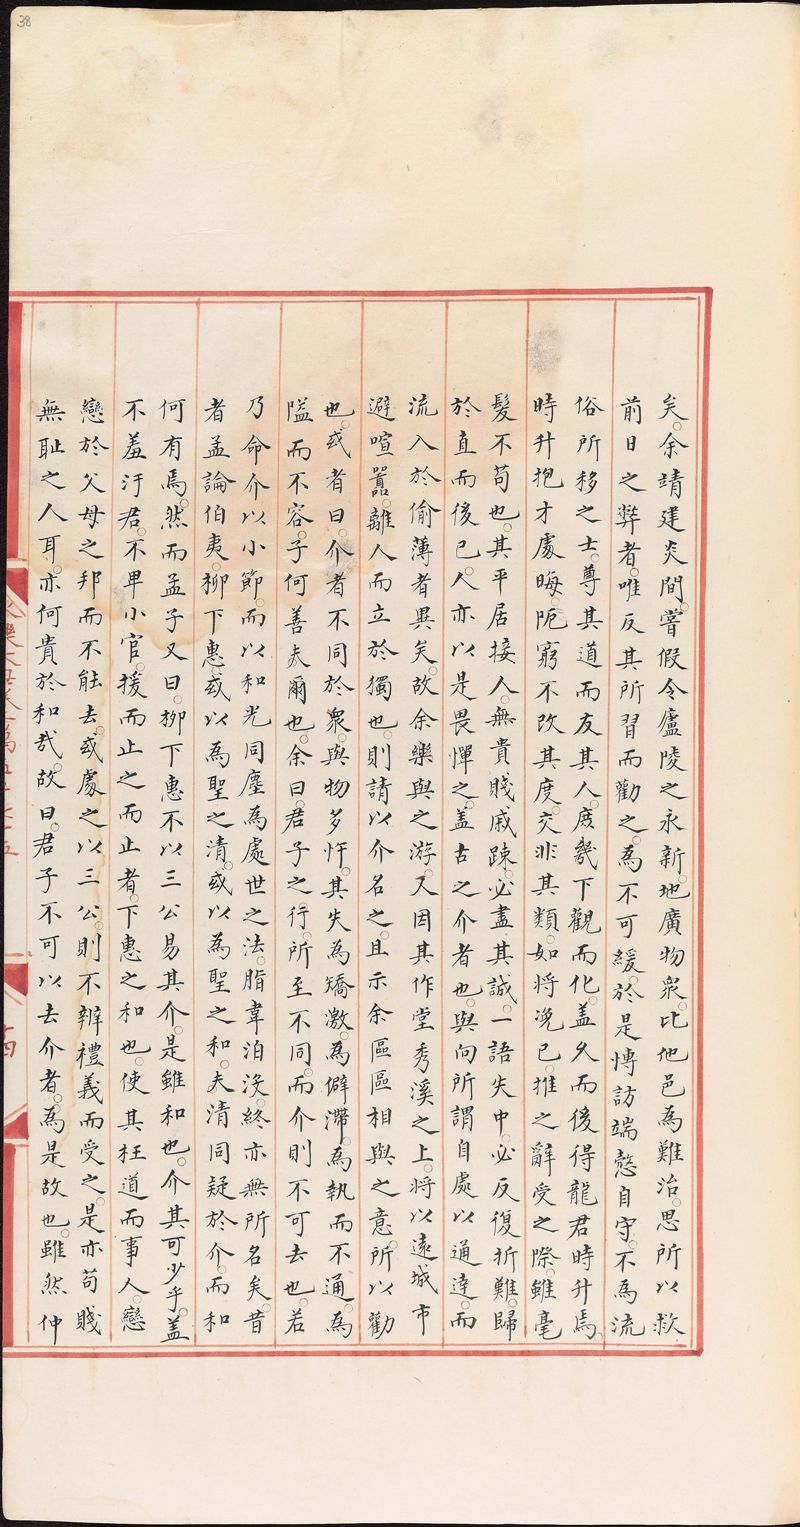 38
矣余靖建炎間嘗假令廬陵之永新地廣物衆比他邑為難治思所以救
前日之弊者唯反其所習而勸之為不可緩於是慱訪端慤自守不為流
俗所移之士尊其道而友其人庶幾下觀而化盖久而後得龍君時升焉
時升抱才處晦阨窮不改其度交非其類如將浼已推之辭受之際雖毫
髮不苟也其平居接人無貴賤戚踈必盡其誠一語失中必反復折難歸
於直而後已人亦以是畏憚之盖古之介者也與向所謂自處以通達而
流入於偷薄者異矣故余樂與之游又因其作堂秀溪之上將以遠城市
避喧囂離人而立於獨也則請以介名之且示余區區相與之意所以勸
也或者曰介者不同於衆與物多忤其失為矯激為僻滯為執而不通為
隘而不容子何善夫爾也余曰君子之行所至不同而介則不可去也若
乃命介以小節而以和光同塵為處世之法脂韋泊没終亦無所名矣昔
者孟論伯夷柳下惠或以為聖之清或以為聖之和夫清同疑於介而和
何有焉然而孟子又曰柳下惠不以三公易其介是雖和也介其可少乎盖
不羞汙君不卑小官援而止之而止者下惠之和也使其枉道而事人戀
戀於父母之邦而不能去或處之以三公則不辨禮義而受之是亦苟賤
無耻之人耳亦何貴於和哉故曰君子不可以去介者為是故也雖然仲